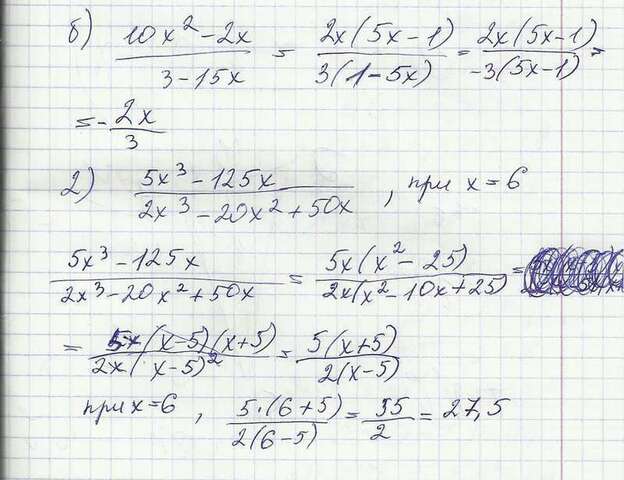 б) (10x² - 2x)/(3 - 15x) = 2x(5x - 1)/3(1 - 5x) = 2x(5x - 1)/-3(5x - 1) =
= - 2x/3
2) (5x³ - 125x)/(2x³ - 20x² + 50x), при x = 6
(5x³ - 125x)/(2x³ - 20x² + 50x) = 5x(x² - 25)/2x(x² - 10x + 25) =
= 5x(x-5)(x+5)/2x(x-5)² = 5(x+5)/2(x-5)
при x = 6, 5·(6+5)/2(6-5) = 55/2 = 27,5